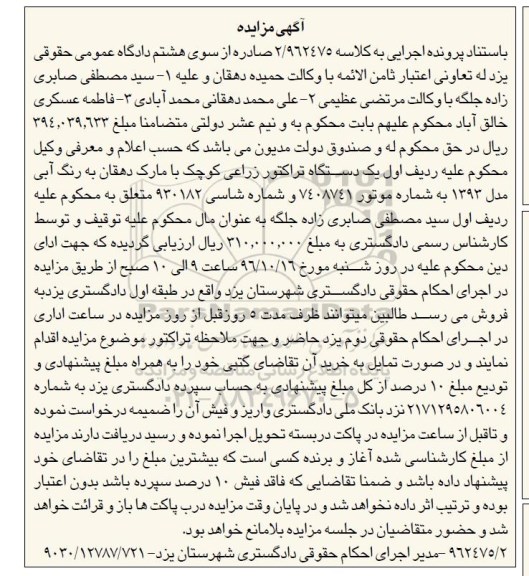 آگهی مزایده
باستناد پرونده اجرایی به کلاسه ۲/۹۶۲۴۷۵ صادره از سوی هشتم دادگاه عمومی حقوقی
یزد له تعاونی اعتبار ثامن الائمه با وکالت حمیده دهقان و علیه ۱- سید مصطفی صابری
زاده جلگه با وکالت مرتضی عظیمی ۲- علی محمد دهقانی محمد آبادی ۳- فاطمه عسکری
خالق آباد محکوم علیهم بابت محکوم به و نیم عشر دولتی متضامنا مبلغ ۳۹۴,۰۳۹,۶۳۳
ریال در حق محکوم له و صندوق دولت مدیون می باشد که حسب اعلام و معرفی وکیل
محکوم علیه ردیف اول یک دستگاه تراکتور زراعی کوچک با مارک دهقان به رنگ آبی
مدل ۱۳۹۳ به شماره موتور ۷۴۰۸۷۴۱ و شماره شاسی ۹۳۰۱۸۲ متعلق به محکوم علیه
ردیف اول سید مصطفی صابری زاده جلگه به عنوان مال محکوم علیه توقیف و توسط
کارشناس رسمی دادگستری به مبلغ ۳۱۰,۰۰۰,۰۰۰ ریال ارزیابی گردیده که جهت ادای
دین محکوم علیه در روز شنبه مورخ ۹۶/۱۰/۱۶ ساعت ۹ الی ۱۰ صبح از طریق مزایده
در اجرای احکام حقوقی دادگستری شهرستان یزد واقع در طبقه اول دادگستری یزد به
فروش می رسد طالبین میتوانند ظرف مدت ۵ روز قبل از روز مزایده در ساعت اداری
در اجرای احکام حقوقی دوم یزد حاضر و جهت ملاحظه تراکتور موضوع مزایده اقدام
نمایند و در صورت تمایل به خرید آن تقاضای کتبی خود را به همراه مبلغ پیشنهادی و
تودیع مبلغ ۱۰ درصد از کل مبلغ پیشنهادی به حساب سپرده دادگستری یزد به شماره
۲۱۷۱۲۹۵۸۰۶۰۰۴ نزد بانک ملی دادگستری واریز و فیش آن را ضمیمه درخواست نموده
و تا قبل از ساعت مزایده در پاکت دربسته تحویل اجرا نموده و رسید دریافت دارند مزایده
از مبلغ کارشناسی شده آغاز و برنده کسی است که بیشترین مبلغ را در تقاضای خود
پیشنهاد داده باشد و ضمنا تقاضایی که فاقد فیش ۱۰ درصد سپرده باشد بدون اعتبار
بوده و ترتیب اثر داده نخواهد شد و در پایان وقت مزایده درب پاکت ها باز و قرائت خواهد
شد و حضور متقاضیان در جلسه مزایده بلامانع خواهد بود.
۹۶۲۴۷۵/۲ -مدیر اجرای احکام حقوقی دادگستری شهرستان یزد- ۹۰۳۰/۱۲۷۸۷/۷۲۱